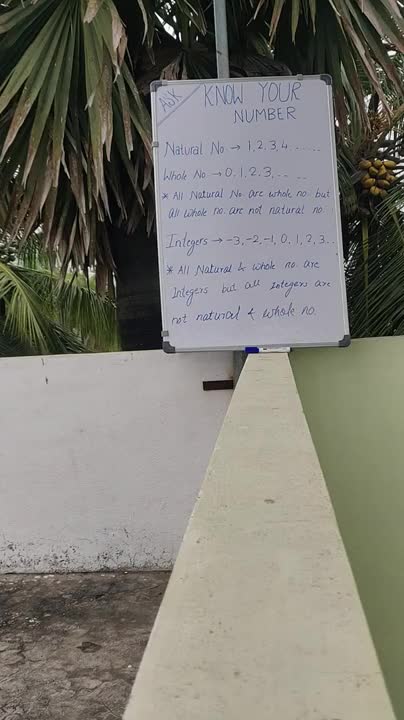 AJK
KNOW YOUR
NUMBER
Natural No. → 1, 2, 3, 4 ......
Whole No → 0, 1, 2, 3, .. .. ..
* All Natural No. are whole no. but
all whole no. are not natural no.
Integers → -3, -2, -1, 0, 1, 2, 3...
* All Natural & whole no. are
Integers but all Integers are
not natural & whole no.